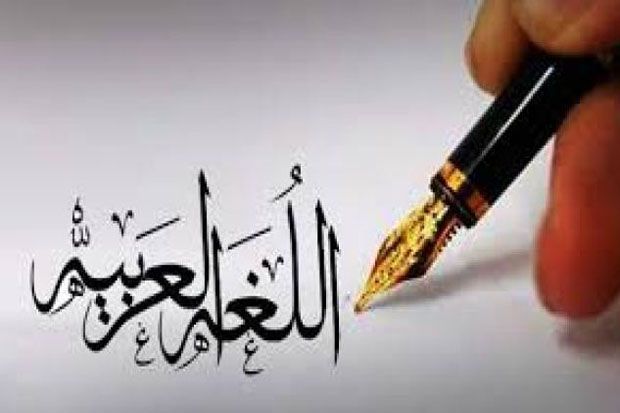 اللُغَه العَرَبيَّه